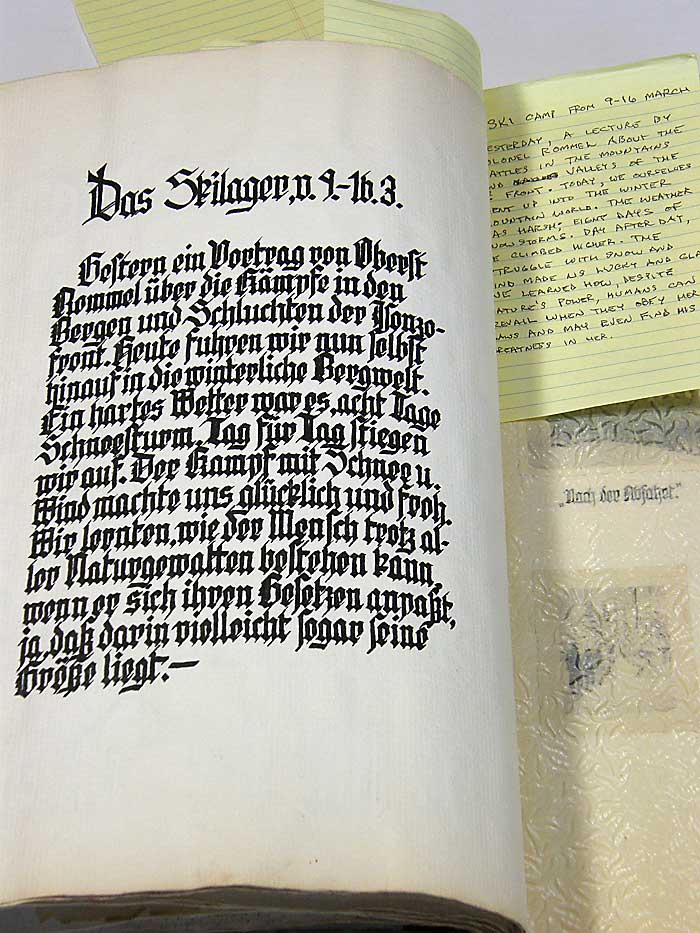 Das Skilager, v. 9.-16.3.
Gestern ein Vortrag von Oberst
Rommel über die Kämpfe in den
Bergen und Schluchten der Isonzo-
front. Heute fuhren wir nun selbst
hinauf in die winterliche Bergwelt.
Ein hartes Wetter war es, acht Tage
Schneesturm. Tag für Tag stiegen
wir auf. Der Kampf mit Schnee u.
Wind machte uns glücklich und froh.
Wir lernten, wie der Mensch trotz al-
ler Naturgewalten bestehen kann,
wenn er sich ihren Gesetzen anpaßt,
ja, daß darin vielleicht sogar seine
Größe liegt.—
SKI CAMP FROM 9-16 MARCH
ESTERDAY, A LECTURE BY
OLONEL ROMMEL ABOUT THE
ATTLES IN THE MOUNTAINS
ND VALLEYS OF THE
FRONT. TODAY, WE OURSELVES
ENT UP INTO THE WINTER
OUNTAIN WORLD. THE WEATHER
AS HARSH; EIGHT DAYS OF
NOWSTORMS. DAY AFTER DAY,
E CLIMBED HIGHER. THE
TRUGGLE WITH SNOW AND
IND MADE US LUCKY AND GLA
E LEARNED HOW, DESPITE
ATURE'S POWER, HUMANS CAN
REVAIL WHEN THEY OBEY HER
AWS AND MAY EVEN FIND HIS
REATNESS IN HER.
„Nach der Abfahrt."